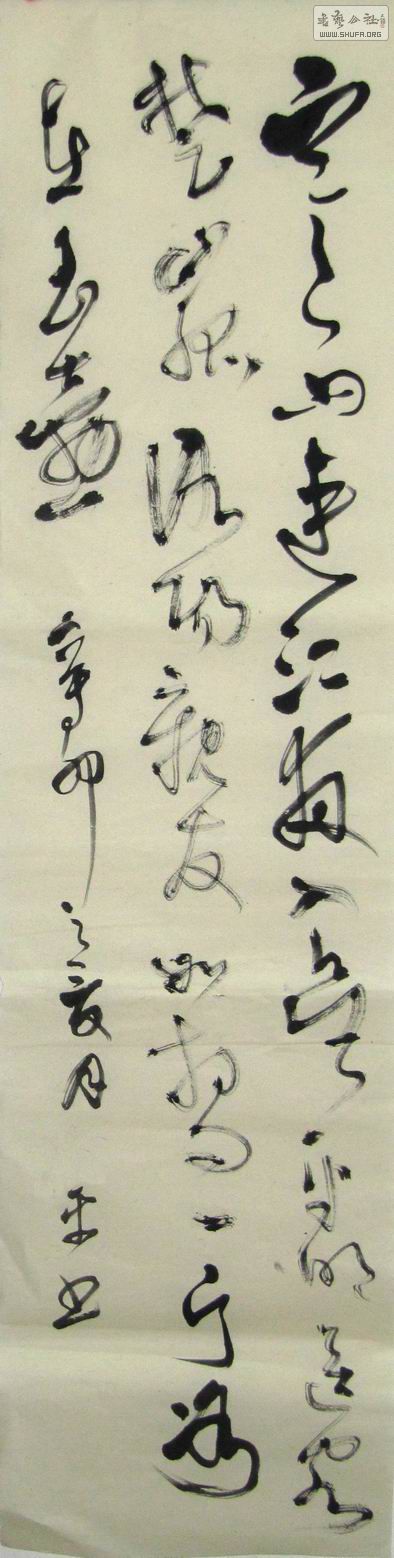 書藝公社
WWW.SHUFA.ORG
寒雨連江夜入吳平明送客
楚山孤洛陽親友如相問一片冰心
在玉壺 辛卯之夏月 平书